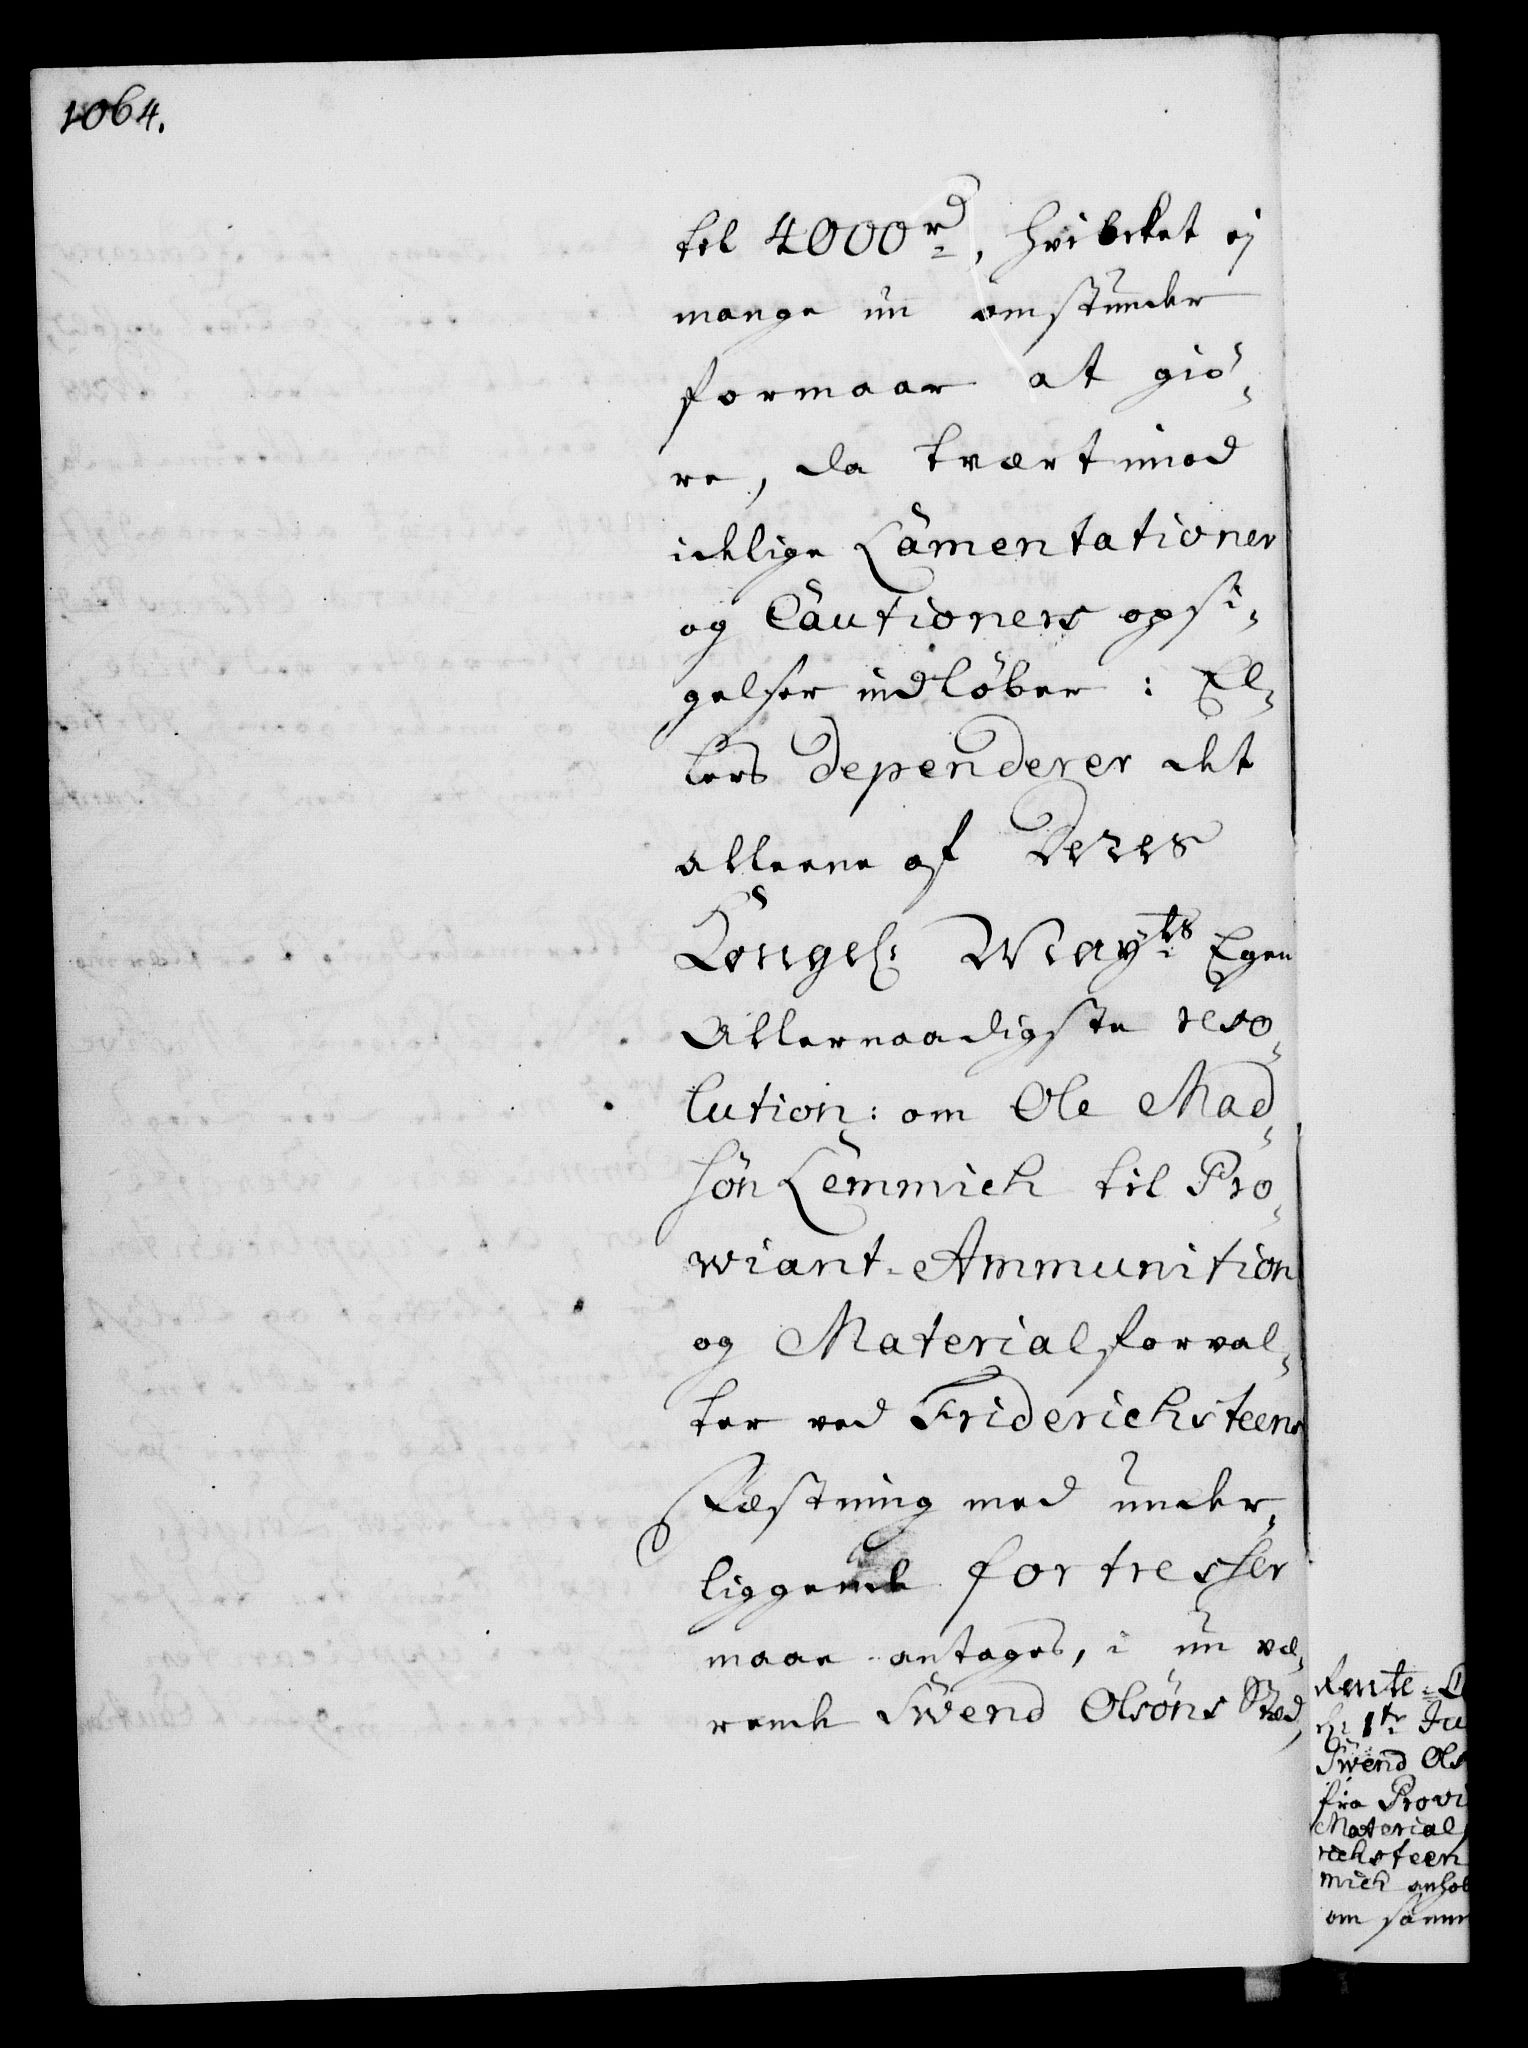 1064.
til 4000 rd, hvilcket ej
mange nu omstunder
formaar at giö,
re, da tvært imod
idelige Lamentationer
og Cautioners opsi,
gelser indlöber: El,
lers dependerer det
alleene af Deres
Kongel: Mayts Egen
Allernaadigste reso,
lution: om Ole Mad,
sön Lemmich til Pro,
wiant-Ammunition
og Materialforval,
ter ved Friderichsteens
Fæstning med under,
liggende fortresser
maae antages, i nu væ,
rende Swend Olsöns Stæd,
Rente-
1te Ju
Swend Ols
fra Provi
Material
richsteen
mich anhol
om samm